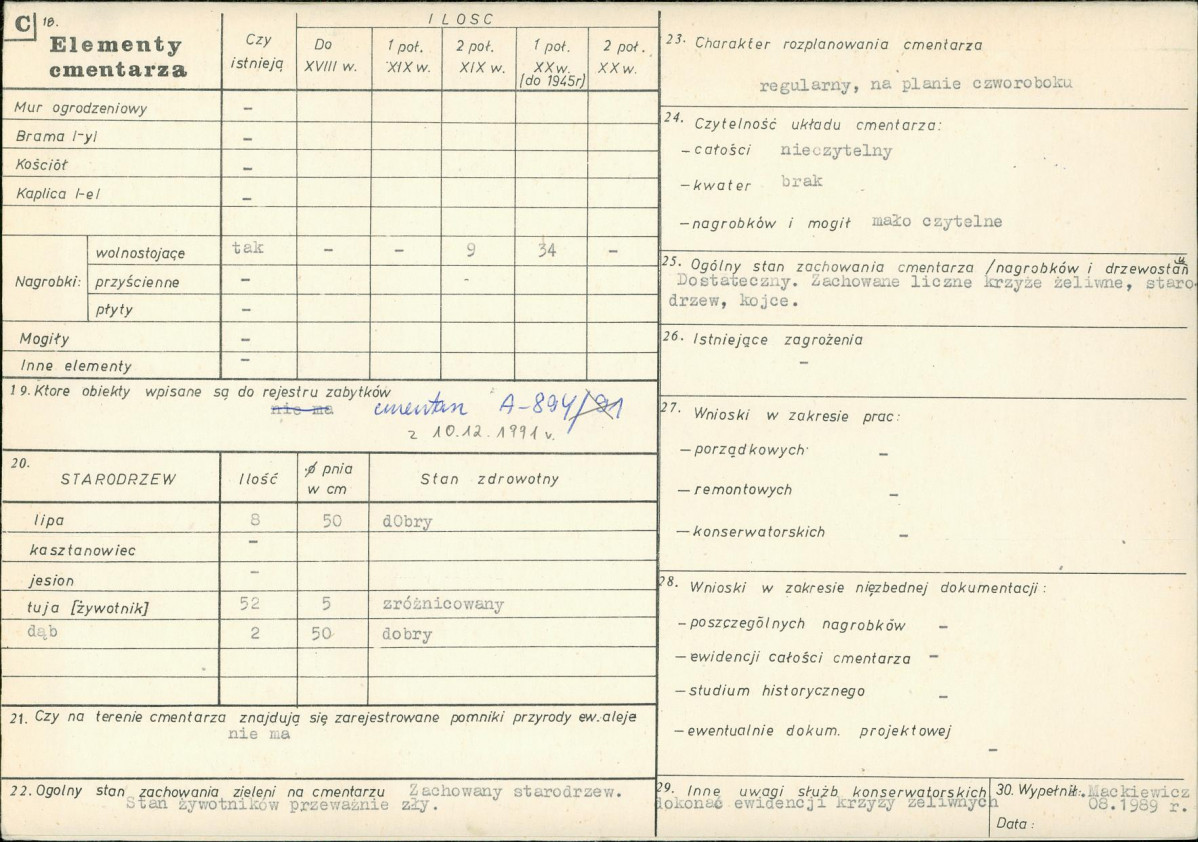 C 18. Elementy cmentarza
Czy istnieją
ILOSC
Do XVIII w.
1 poł. XIX w.
2 poł. XIX w.
1 poł. XX w. (do 1945r)
2 poł. XX w.
Mur ogrodzeniowy -
Brama /-y/ -
Kościół -
Kaplica /-e/ -
Nagrobki: wolnostojące tak - - 9 34 -
przyścienne - -
płyty -
Mogiły -
Inne elementy -
19. Ktore obiekty wpisane są do rejestru zabytków
nie ma cmentarz A-894/91
z 10.12.1991 r.
20. STARODRZEW Ilość ø pnia w cm Stan zdrowotny
lipa 8 50 dObry
kasztanowiec -
jesion -
tuja [żywotnik] 52 5 zróżnicowany
dąb 2 50 dobry
21. Czy na terenie cmentarza znajdują się zarejestrowane pomniki przyrody ew. aleje
nie ma
22. Ogolny stan zachowania zieleni na cmentarzu Zachowany starodrzew.
Stan żywotników przeważnie zły.
23. Charakter rozplanowania cmentarza
regularny, na planie czworoboku
24. Czytelność układu cmentarza:
- całości nieczytelny
- kwater brak
- nagrobków i mogił mało czytelne
25. Ogólny stan zachowania cmentarza /nagrobków i drzewostanu
Dostateczny. Zachowane liczne krzyże żeliwne, staro-
drzew, kojce.
26. Istniejące zagrożenia
-
27. Wnioski w zakresie prac:
- porządkowych -
- remontowych -
- konserwatorskich -
28. Wnioski w zakresie niezbednej dokumentacji:
- poszczególnych nagrobków -
- ewidencji całości cmentarza -
- studium historycznego -
- ewentualnie dokum. projektowej
-
29. Inne uwagi służb konserwatorskich
dokonać ewidencji krzyży żeliwnych
30. Wypełnił: Mackiewicz
08.1989 r.
Data: